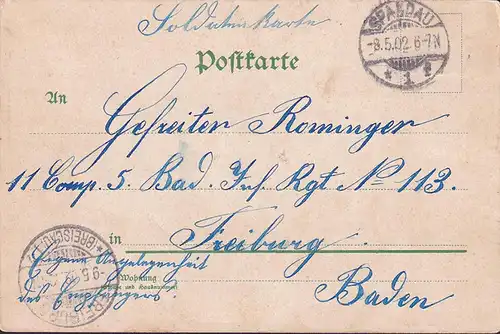 Soldatenkarte
SPANDAU
-8.5.02.6-7N
* 1 f
Postkarte
An
Gefreiten Rominger
11 Comp. 5. Bad. Inf. Rgt No 113.
in Freiburg
(BREISGAU)
-9.5.
Eigene Angelegenheit
Wohnung
des Empfängers.
Baden